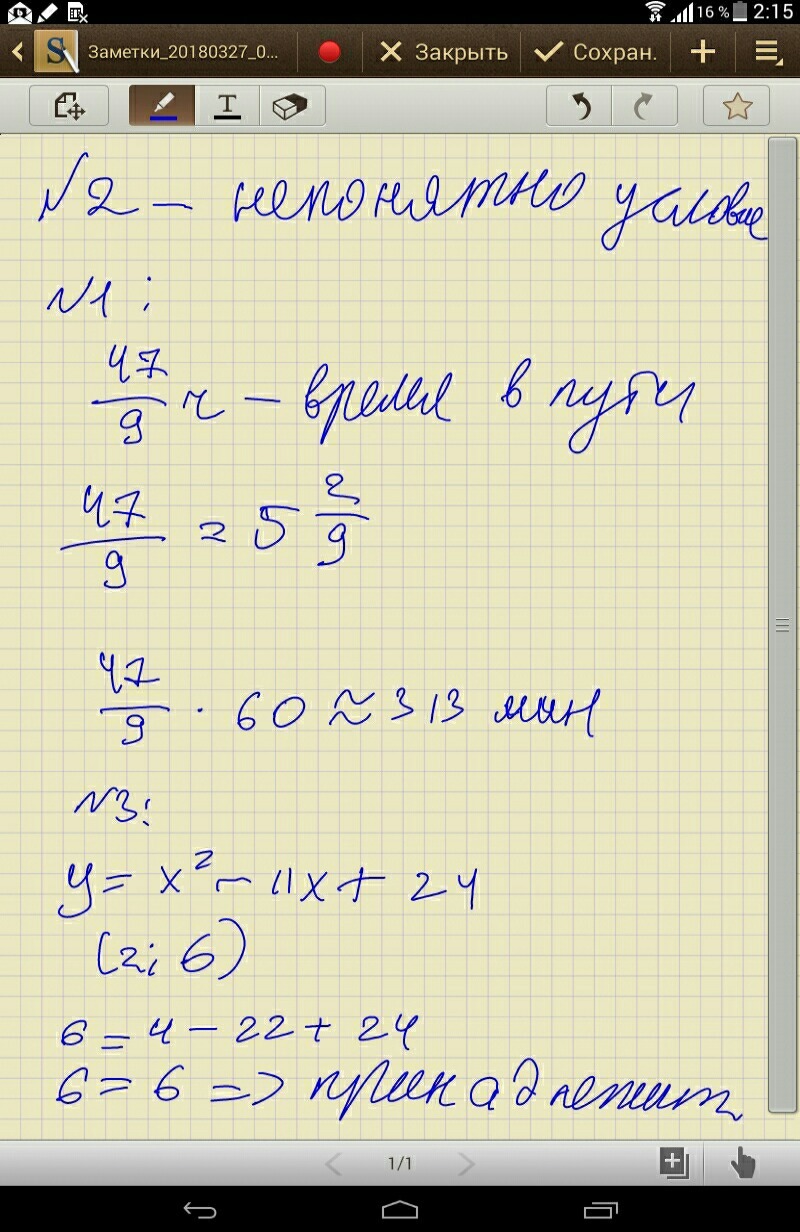 16 % 2:15
Заметки_20180327_0... Закрыть Сохран.
T
№2 – непонятно условие
№1:
47/9 ч – время в пути
47/9 = 5 2/9
47/9 · 60 ≈ 313 мин
№3:
y = x² – 11x + 24
(2; 6)
6 = 4 – 22 + 24
6 = 6 => принадлежит
1/1